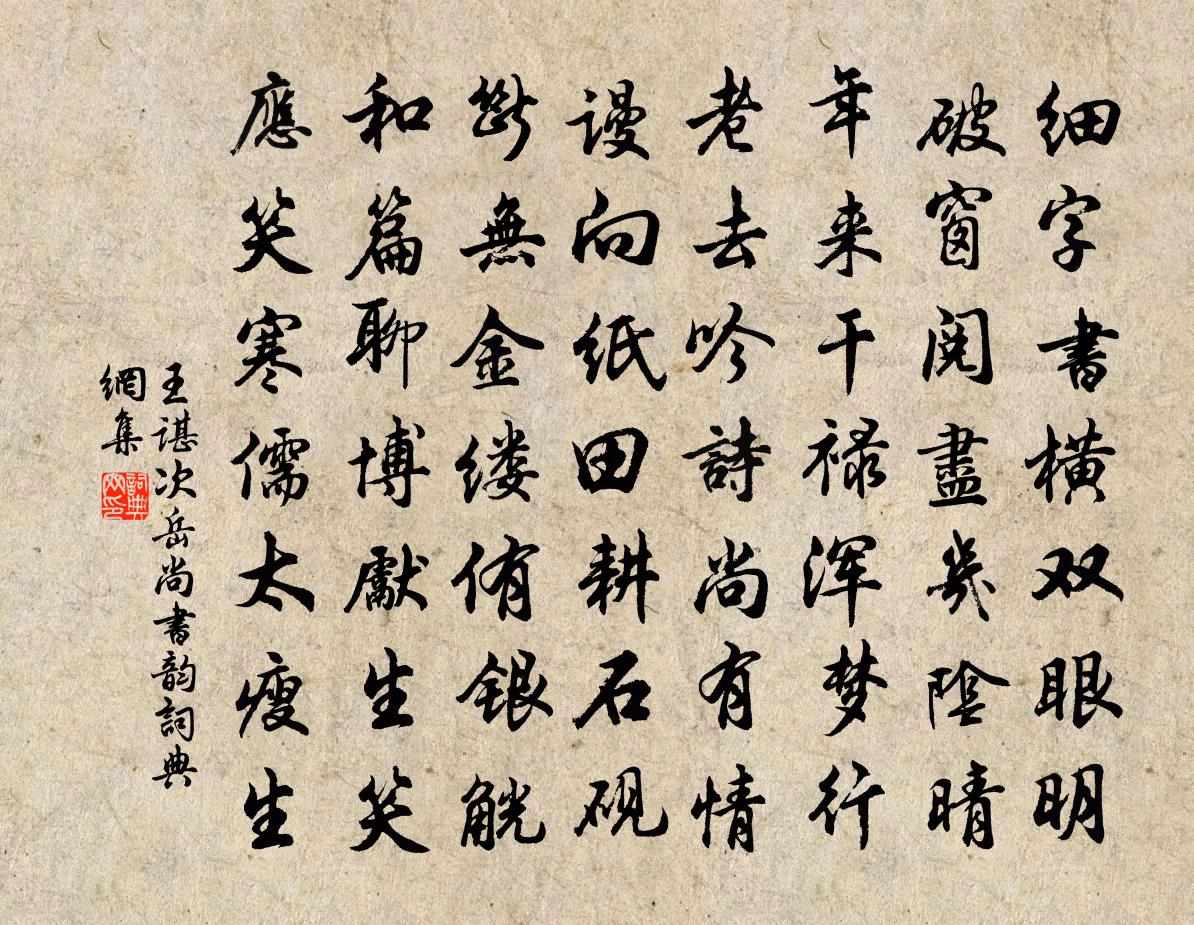 细字书横双眼明
破窗阅尽几阴晴
年来干禄浑梦行
老去吟诗尚有情
谩向纸田耕石砚
断无金缕侑银觥
和篇聊博献生笑
应笑寒儒太瘦生
王谌次岳尚书韵词典
网集